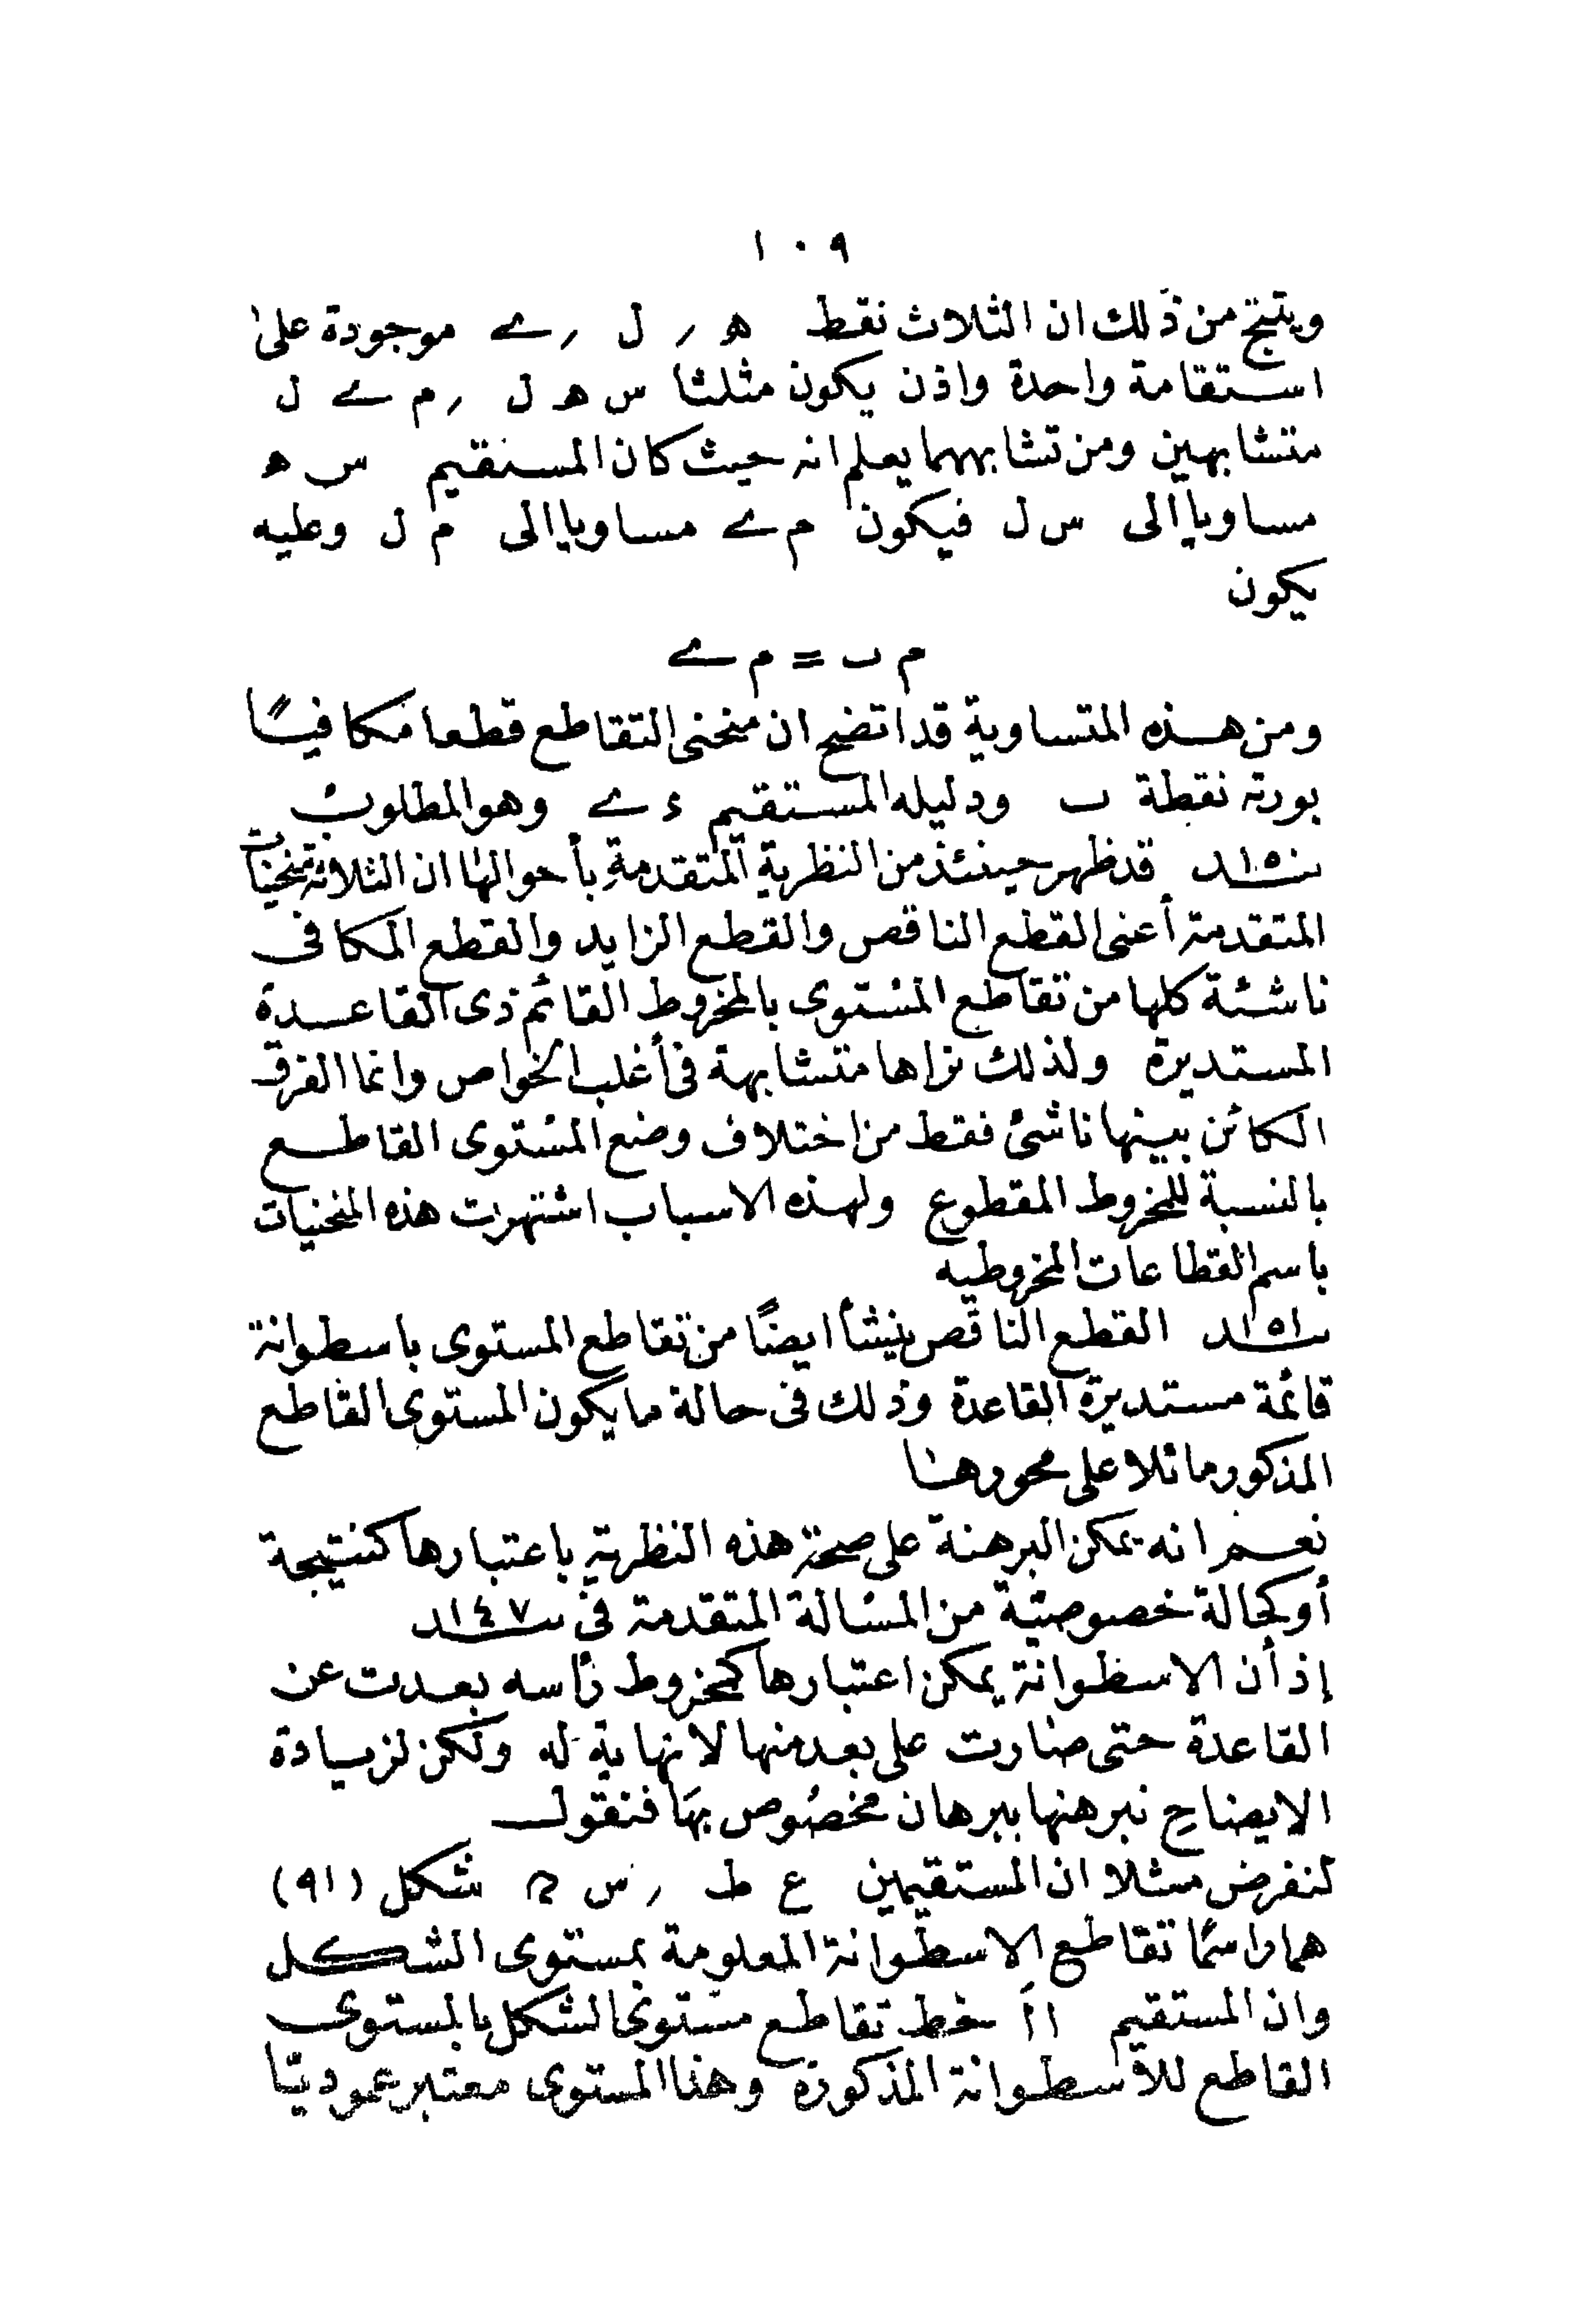 ١٠٩
وينتج من ذلك ان الثلاث نقط ه , ل , ے موجودة على
استقامة واحدة واذن يكون مثلثا س ه ل , م ے ل
متشابهين ومن تشابههما يعلم انه حيث كان المستقيم س ه
مساويا الى س ل فيكون م ے مساويا الى م ل وعليه
يكون
م ب = م ے
ومن هذه المتساوية قد اتضح ان منحنى التقاطع قطعا مكافيًا
بورته نقطة ب ودليله المستقيم ء ے وهو المطلوب
١٥٠ قد ظهر حينئذ من النظرية المتقدمة بأحوالها ان الثلاثة منحنيات
المتقدمة أعنى القطع الناقص والقطع الزايد والقطع المكافى
ناشئة كلها من تقاطع المستوى بالمخروط القائم ذى القاعدة
المستديرة ولذلك نراها متشابهة فى أغلب الخواص وانما الفرق
الكائن بينها ناشئ فقط من اختلاف وضع المستوى القاطع
بالنسبة للمخروط المقطوع ولهذه الاسباب اشتهرت هذه المنحنيات
باسم القطاعات المخروطيه
١٥١ القطع الناقص ينشأ ايضًا من تقاطع المستوى باسطوانة
قائمة مستديرة القاعدة وذلك فى حالة ما يكون المستوى القاطع
المذكور مائلا على محورها
نعم انه يمكن البرهنة على صحة هذه النظرية باعتبارها كنتيجة
أو كحالة خصوصية من المسالة المتقدمة فى ١٤٧
إذ أن الاسطوانة يمكن اعتبارها كمخروط رأسه بعدت عن
القاعدة حتى صارت على بعد منها لا نهاية له ولكن لزيادة
الايضاح نبرهنها ببرهان مخصوص بها فنقول
لنفرض مثلا ان المستقيمين ع ط , س ﻫ شكل (٩١)
هما راسما تقاطع الاسطوانة المعلومة بمستوى الشكل
وان المستقيم ١أَ خط تقاطع مستوى الشكل بالمستوى
القاطع للاسطوانة المذكورة وهذا المستوى معتبر عموديًا